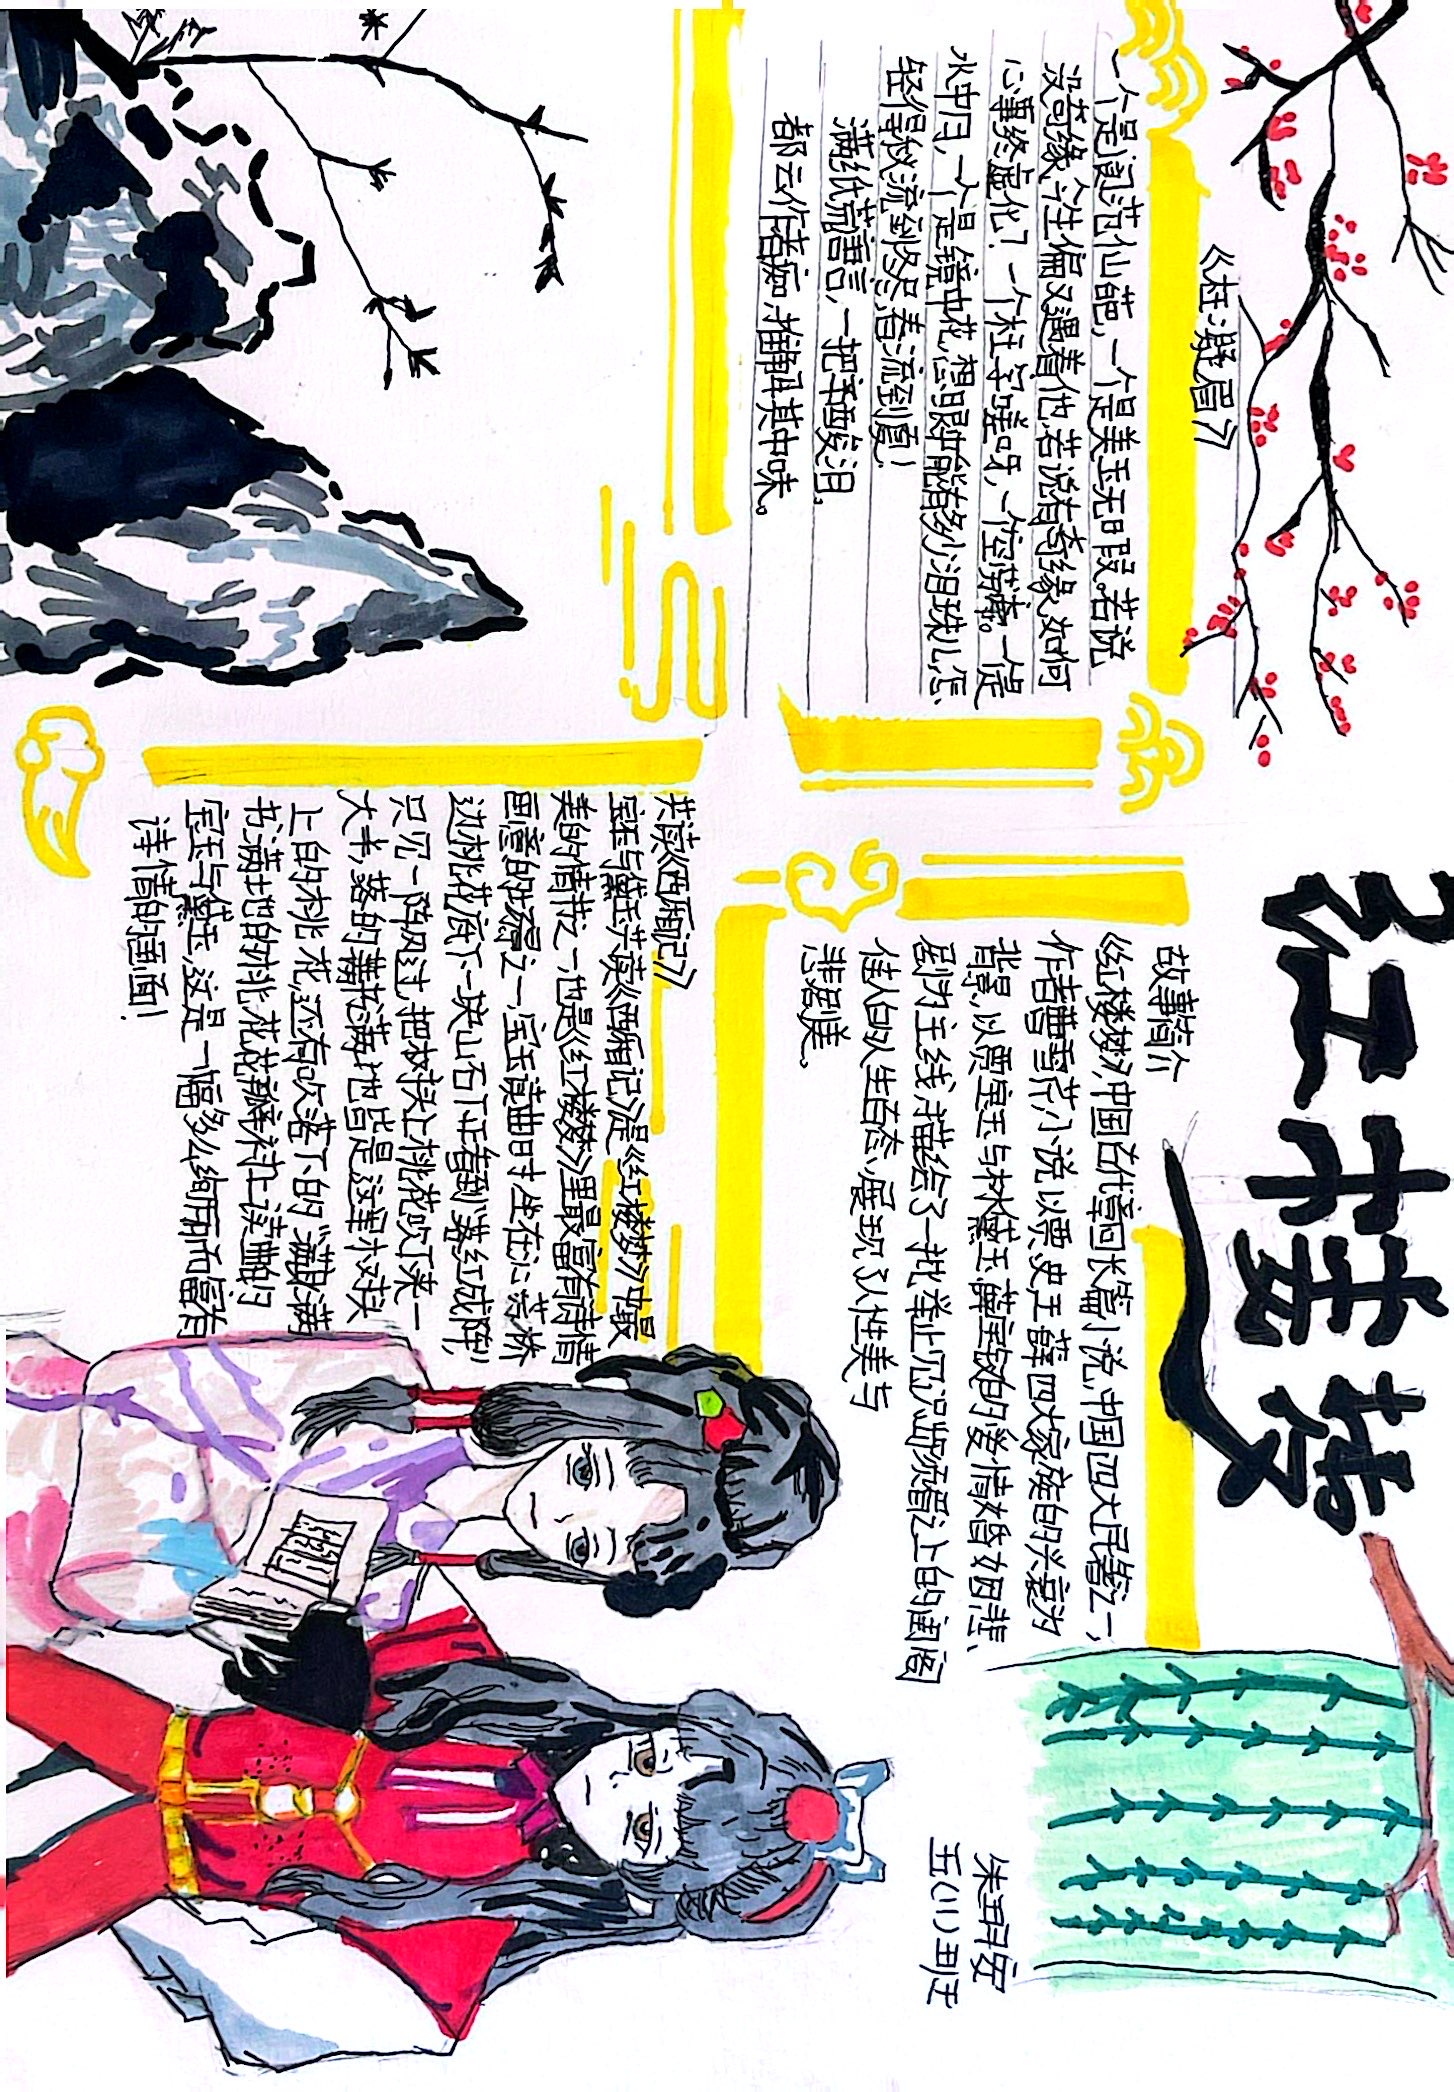 红楼梦
《枉凝眉》
一个是阆苑仙葩,一个是美玉无瑕。若说
没奇缘,今生偏又遇着他,若说有奇缘,如何
心事终虚化?一个枉字嗟呀,一个空劳牵。一个是
水中月,一个是镜中花,想眼中能有多少泪珠儿,怎
轻得秋流到冬尽,春流到夏!
满纸荒唐言,一把辛酸泪。
都云作者痴,谁解其中味。
故事简介
《红楼梦》,中国古代章回长篇小说,中国四大名著之一,
作者曹雪芹,小说以贾、史、王、薛四大家族的兴衰为
背景,以贾宝玉与林黛玉、薛宝钗的爱情婚姻悲
剧为主线,描绘了一批举止见识出须眉之上的闺阁
佳人的人生百态,展现了人性美与
悲剧美。
共读《西厢记》
宝玉与黛玉共读《西厢记》是《红楼梦》中最
美的情节之一,也是《红楼梦》里最富有诗情
画意的场景之一,宝玉读曲时坐在沁芳桥
边桃花底下一块山石下正看到"落红成阵",
只见一阵风过,把树头上桃花吹下来一
大半,落的满书满地皆是这里亦树头
上的桃花,还有吹落下的"满身满
书满地的桃花花瓣,树上读曲的
宝玉与黛玉,这是一幅多么绚丽而富有
诗情的画面!
朱玥安
五(11)班